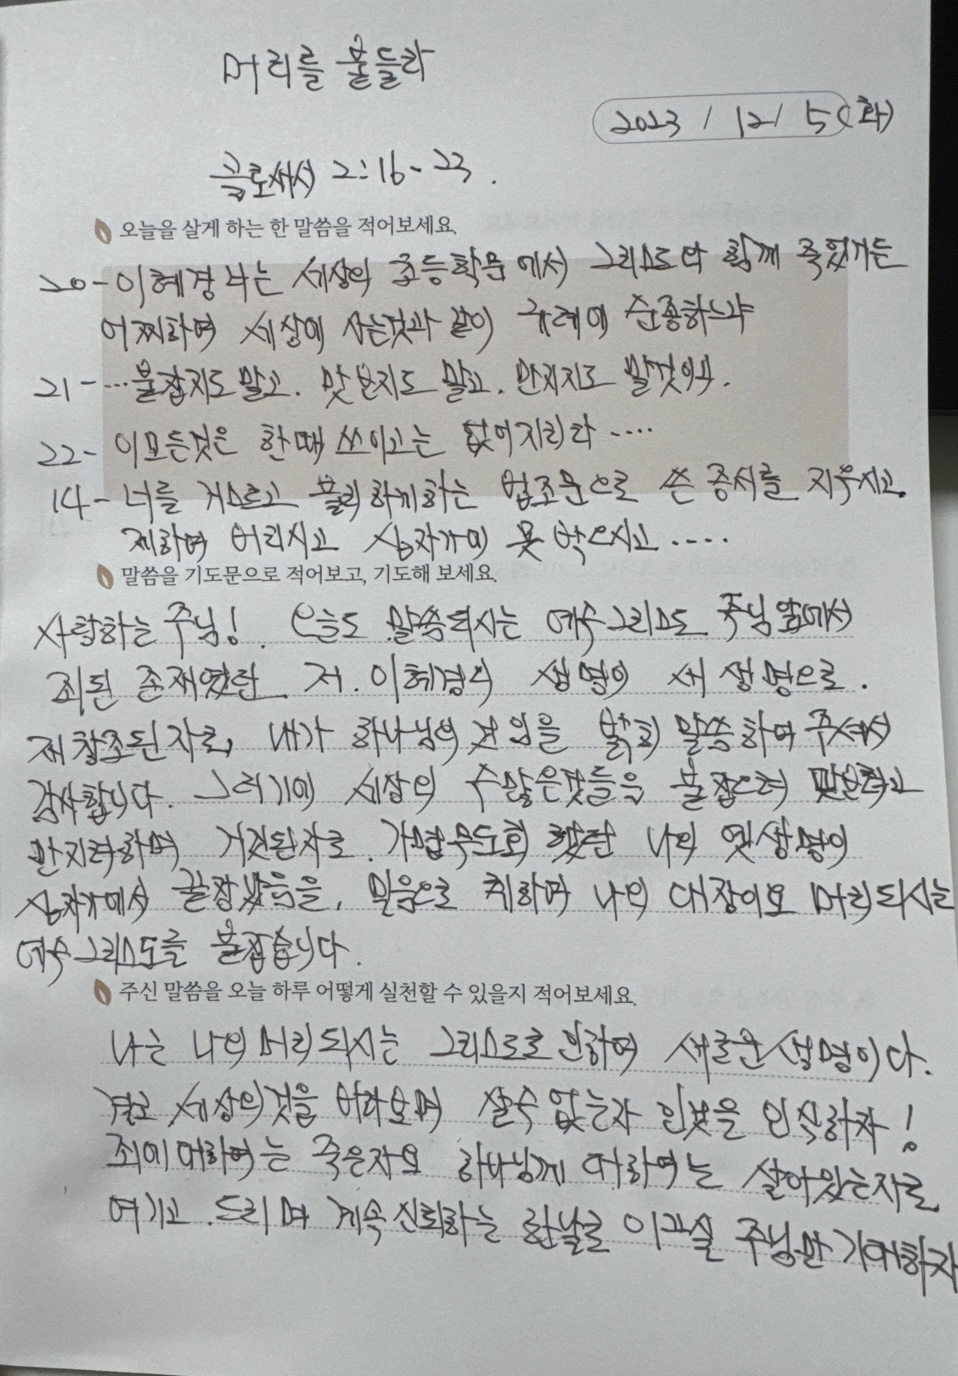 머리를 붙들라
2023 / 12 / 5 (화)
골로새서 2:16-23.
오늘을 살게 하는 한 말씀을 적어보세요.
20- 이혜경 너는 세상의 초등학문에서 그리스도와 함께 죽었거든
어찌하여 세상에 사는것과 같이 규례에 순종하느냐
21- ...붙잡지도 말고. 맛보지도 말고. 만지지도 말것이니.
22- 이모든것은 한때 쓰이고는 없어지리라 ....
14- 너를 거스르고 불리하게하는 법조문으로 쓴 증서를 지우시고.
제하여 버리시고 십자가에 못 박으시고 ....
말씀을 기도문으로 적어보고, 기도해 보세요.
사랑하는 주님! 오늘도 말씀되시는 예수그리스도 주님앞에서
죄된 존재였던 저. 이혜경의 생명이 새 생명으로.
재창조된자로, 내가 하나님의 것 임을 밝히 말씀하여 주셔서
감사합니다. 그러기에 세상의 수많은것들을 붙잡으려 맛보려고
만지려하며 거짓된자로 가면무도회 했던 나의 옛생명이
십자가에서 끝장났음을, 믿음으로 취하며 나의 대장이요 머리되시는
예수그리스도를 붙잡습니다.
주신 말씀을 오늘 하루 어떻게 실천할 수 있을지 적어보세요.
나는 나의 머리되시는 그리스도로 인하여 새로운 생명이다.
결코 세상의것을 바라보며 살수 없는자 인것을 인식하자!
죄에 대하여는 죽은자요 하나님께 대하여는 살아있는자로
여기고 드리며 계속 신뢰하는 한날로 이끄실 주님만 기대하자